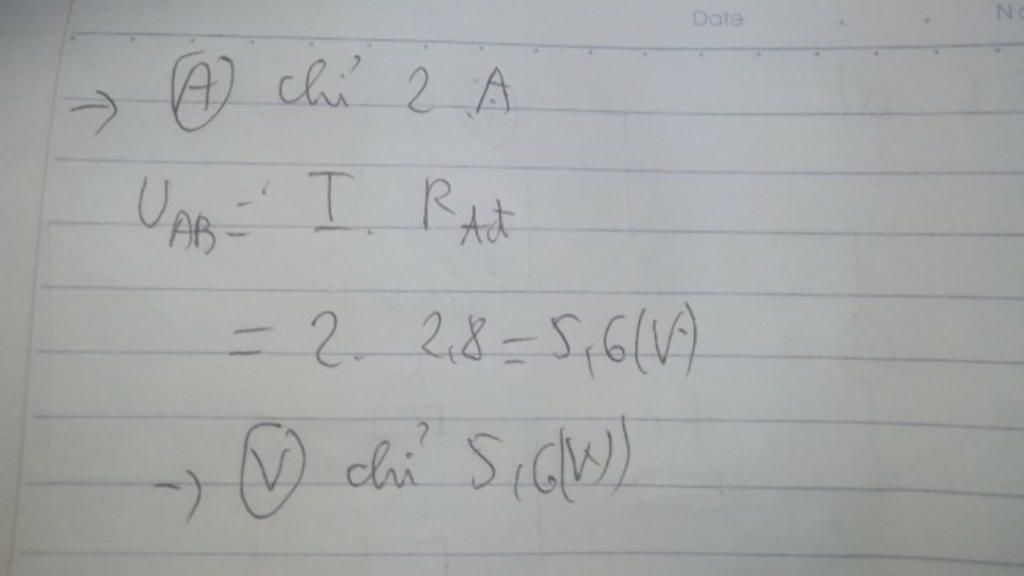 Date No
→ Ⓐ chỉ 2 A
U_AB = I. R_Ad
= 2. 2,8 = 5,6(V)
→ Ⓥ chỉ 5,6(V)